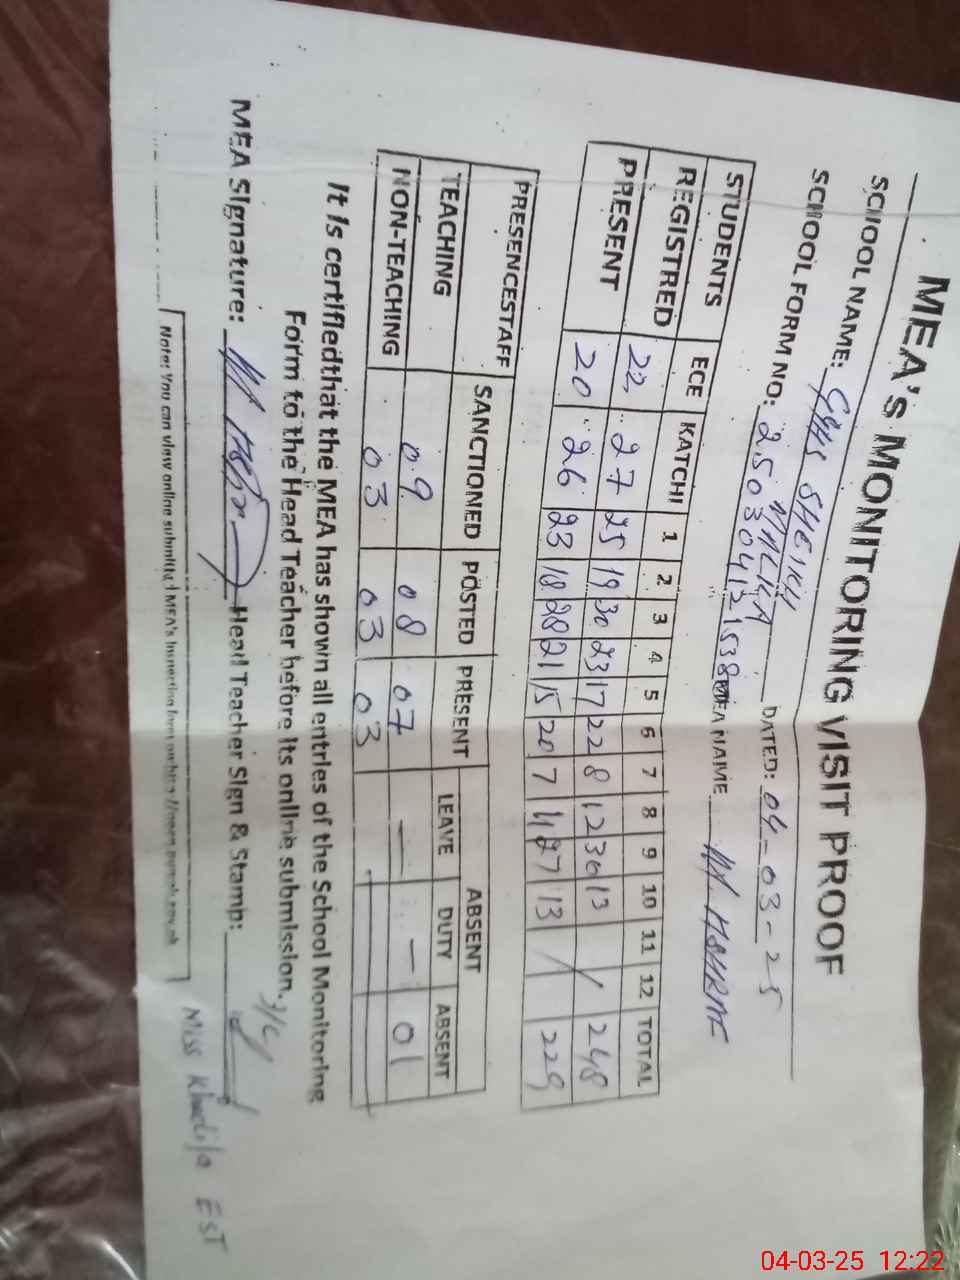 MEA'S MONITORING VISIT PROOF
SCHOOL NAME: GGHS SHEIKH MALKA DATED: 04-03-25
SCHOOL FORM NO: 250304121538 MEA NAME M. ASHRAF
STUDENTS ECE KATCHI 1 2 3 4 5 6 7 8 9 10 11 12 TOTAL
REGISTRED 22 27 25 19 30 23 17 22 8 12 30 13 / 248
PRESENT 20 26 23 18 28 21 15 20 7 27 13 / 229
PRESENCESTAFF SANCTIONED POSTED PRESENT ABSENT
LEAVE DUTY ABSENT
TEACHING 09 08 07 — — 01
NON-TEACHING 03 03 03
It is certifiedthat the MEA has shown all entries of the School Monitoring
Form to the Head Teacher before its online submission.
MEA Signature: Head Teacher Sign & Stamp:
Note: You can view online submitted MEA's Inspection form on
Miss EST
04-03-25 12:22